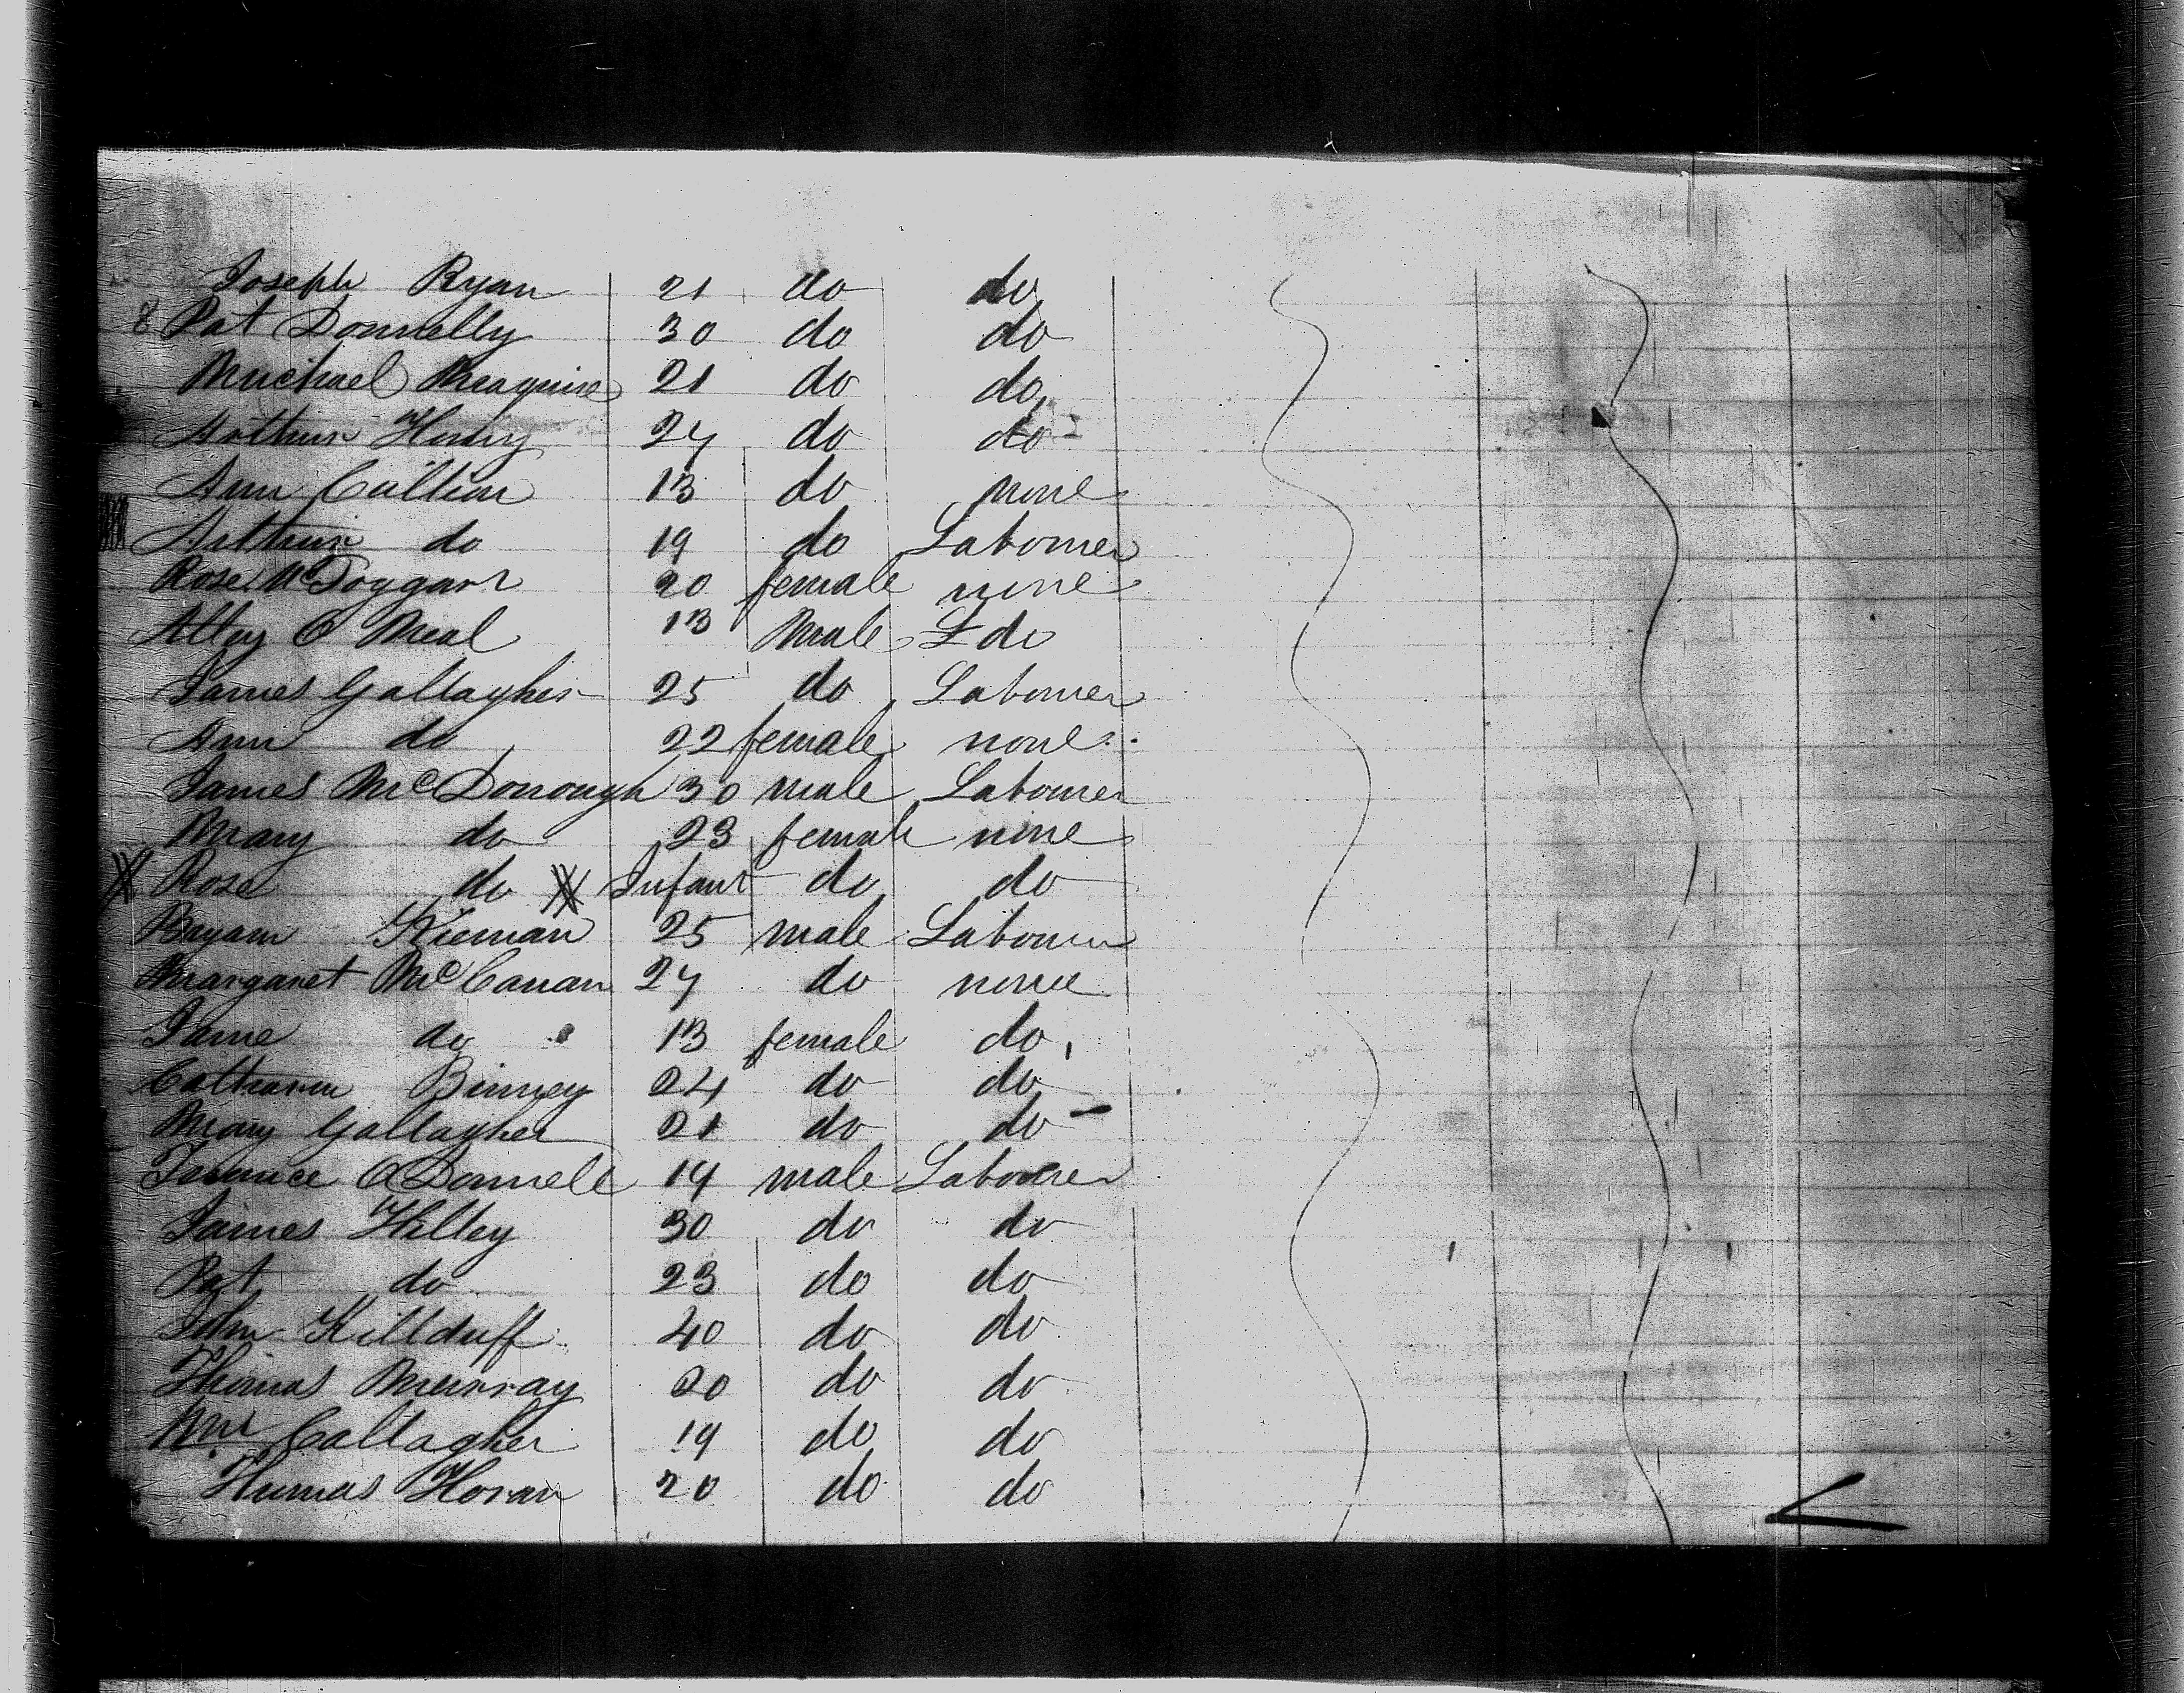 Joseph Ryan 21 do do
8 Pat Donnelly 30 do do
Michael Meaguire 21 do do
Arthur Henry 24 do do
Ann Cullion 13 do none
Arthur do 19 do Labourer
Rose McToggart 20 female none
Alley O Neal 13 Male do
James Gallagher 25 do Labourer
Ann do 22 female none
James McDonough 30 male Labourer
Mary do 23 female none
X Rose do X Infant do do
Bryan Kiernan 25 male Labourer
Margaret McCanan 24 do none
Jane do 13 female do
Catharine Binney 24 do do
Mary Gallagher 21 do do
Terence O'Donnele 19 male Labourer
James Hilley 30 do do
Pat do 23 do do
John Killduff 40 do do
Thomas Murray 20 do do
Wm Callagher 19 do do
Thomas Horan 20 do do